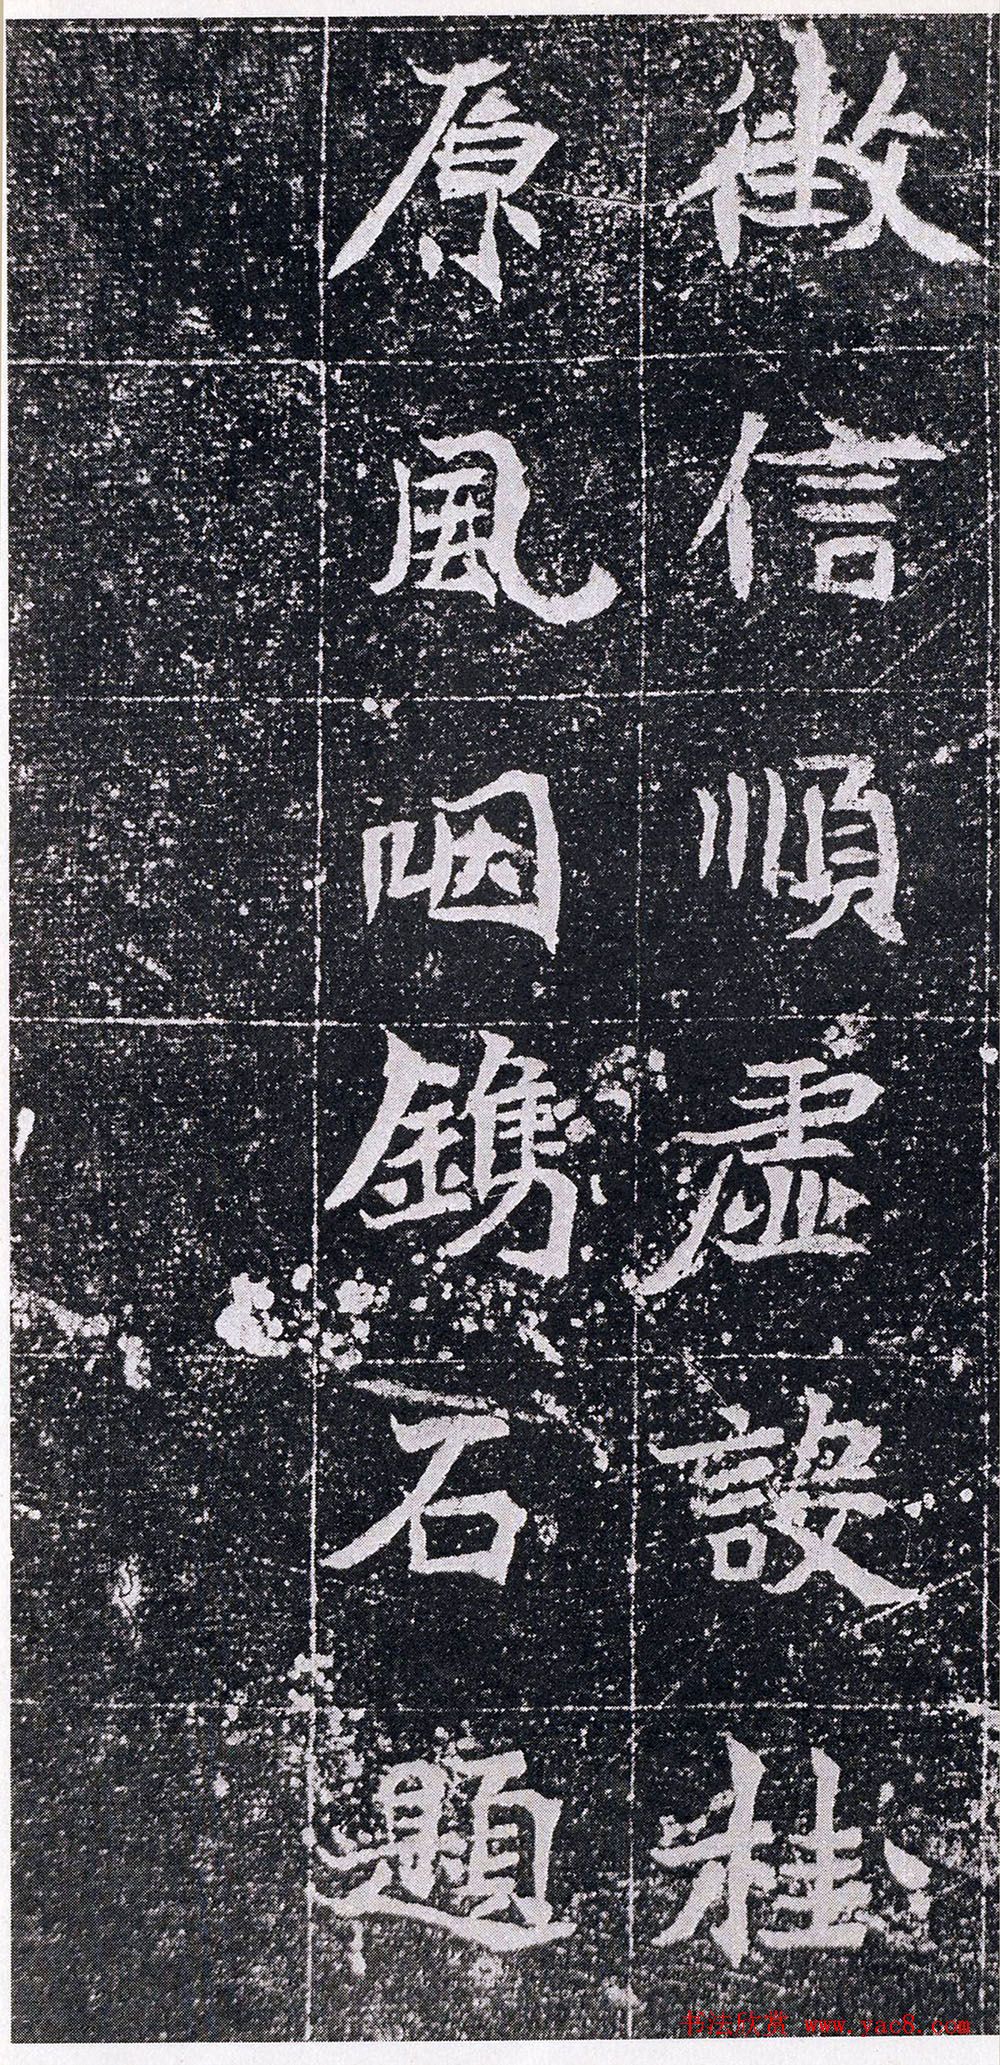 徵信順虛設桂
原風咽鐫石題
书法欣赏 www.yac8.com